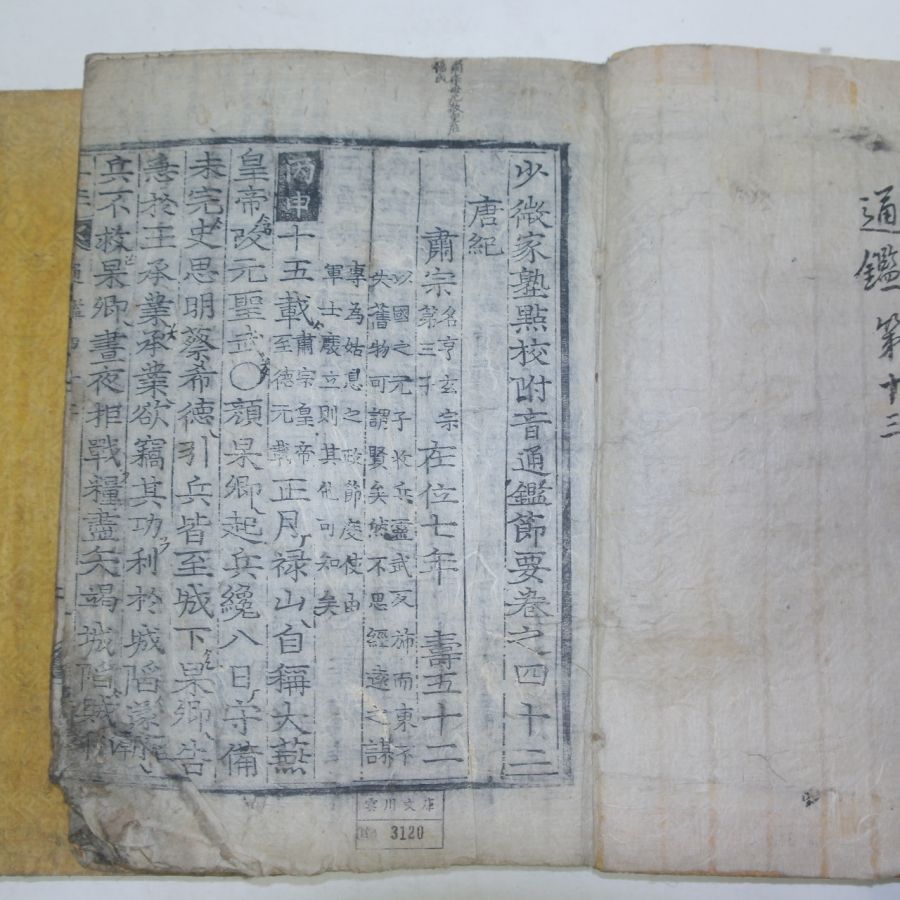 通鑑 第十三
少微家塾點校附音通鑑節要卷之四十二
唐紀
肅宗 名亨玄宗第三子 在位七年 壽五十二
以國之元子收兵靈武反旆而東不
失舊物可謂賢矣然不思經遠之謀
專為姑息之政節度使由
軍士廢立則其他可知矣
丙申 十五載 肅宗皇帝至德元載 正月祿山自稱大燕
皇帝改元聖武○顔杲卿起兵纔八日守備
未完史思明蔡希德引兵皆至城下杲卿告
急於王承業承業欲竊其功利於城陷遂擁
兵不救杲卿晝夜拒戰糧盡矢竭城陷賊
雲川文庫
3120